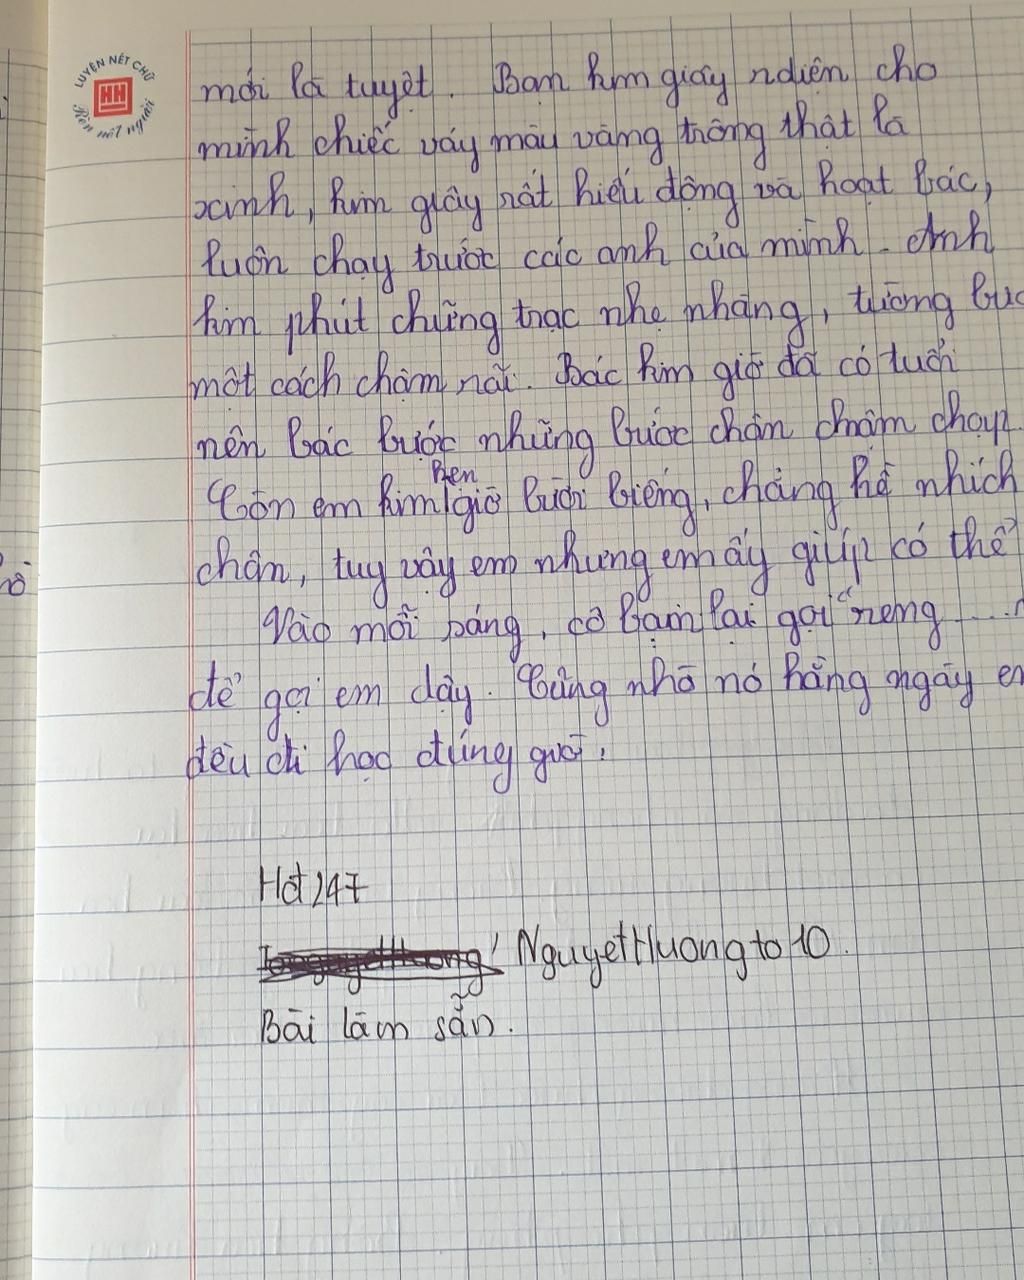 LUYỆN NÉT CHỮ
HH
Rèn nết người
mới là tuyệt. Bạn kim giây ndiện cho
mình chiếc váy màu vàng trông thật là
xinh, kim giây rất hiếu động và hoạt bác,
luôn chạy trước các anh của mình. Anh
kim phút chững trạc nhẹ nhàng, từơng bước
một cách chậm rãi. Bác kim giờ đã có tuổi
nên bác bước những bước chân chậm chạp.
Còn em kim Ren giờ lười biếng, chẳng hề nhích
chân, tuy vậy em nhưng em ấy giúp có thể
Vào mỗi sáng, cô bạn lại gọi "reng ....
để gọi em dậy. Cũng nhờ nó hằng ngày em
đều đi học đúng giờ.
Hđ 247
NguyetHuong to 10.
Bài làm sẵn.